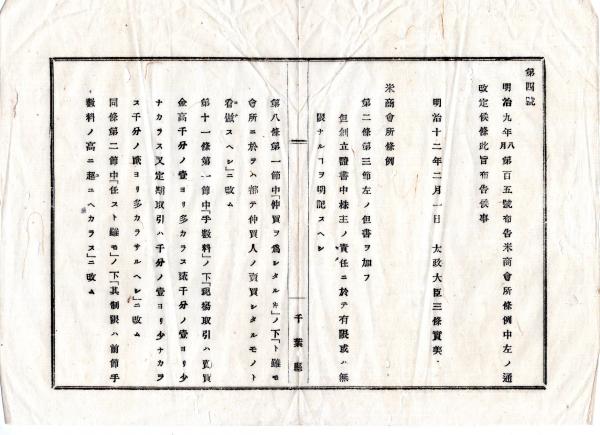 第四號
明治九年八月第百五號布告米商會所條例中左ノ通
改定候條此旨布告候事
明治十二年二月一日　太政大臣三條實美
米商會所條例
第二條第三節左ノ但書ヲ加フ
但創立證書中株主ノ責任ニ於テ有限或ハ無
限ナルヿヲ明記スヘシ
千葉縣
第八條第一節中「仲買ヲ爲シタル𪜈」ノ下「ト雖モ
會所ニ於テハ都テ仲買人ノ賣買シタルモノト
看做スヘシ」ニ改ム
第十一條第一節中「手數料」ノ下「現塲取引ハ賣買
金高千分ノ壹ヨリ多カラス萬千分ノ壹ヨリ少
ナカラス又定期取引ハ千分ノ壹ヨリ少ナカラ
ス千分ノ ヨリ多カラサルヘシ」ニ改ム
同條第二節中「任スト雖モ」ノ下「其制限ハ前節手
數料ノ高ニ超ユヘカラス」ニ改ム